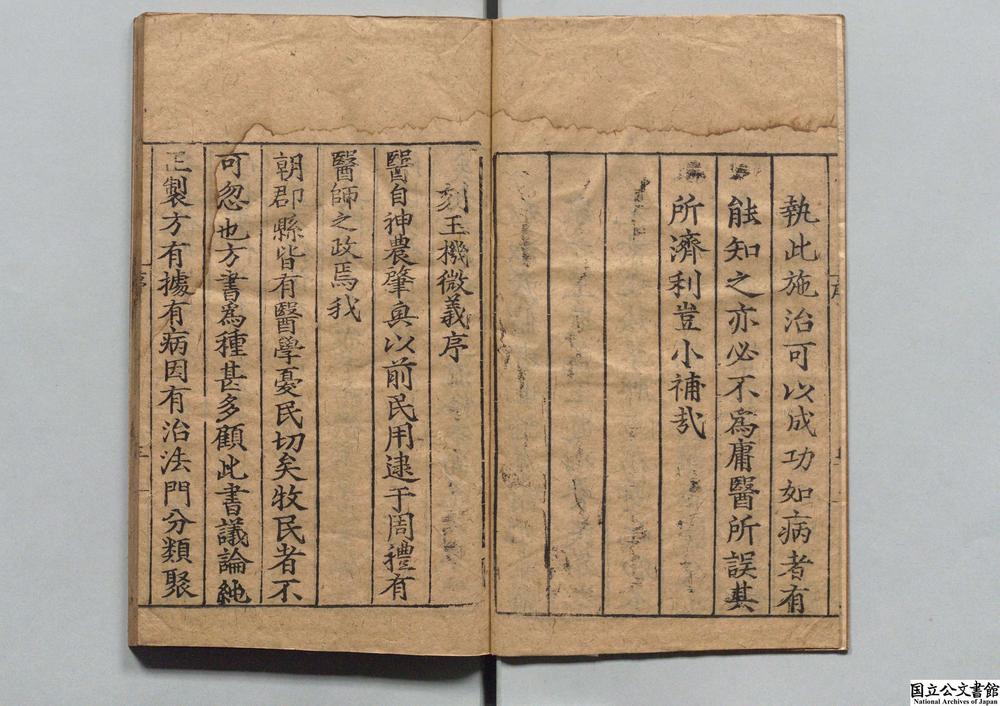 執此施治可以成功如病者有
能知之亦必不爲庸醫所誤其
所濟利豈小補哉
刻玉機微義序
醫自神農肇興以前民用逮于周禮有
醫師之政焉我
朝郡縣皆有醫學憂民切矣牧民者不
可忽也方書爲種甚多顧此書議論純
正製方有據有病因有治法門分類聚
序
国立公文書館
National Archives of Japan